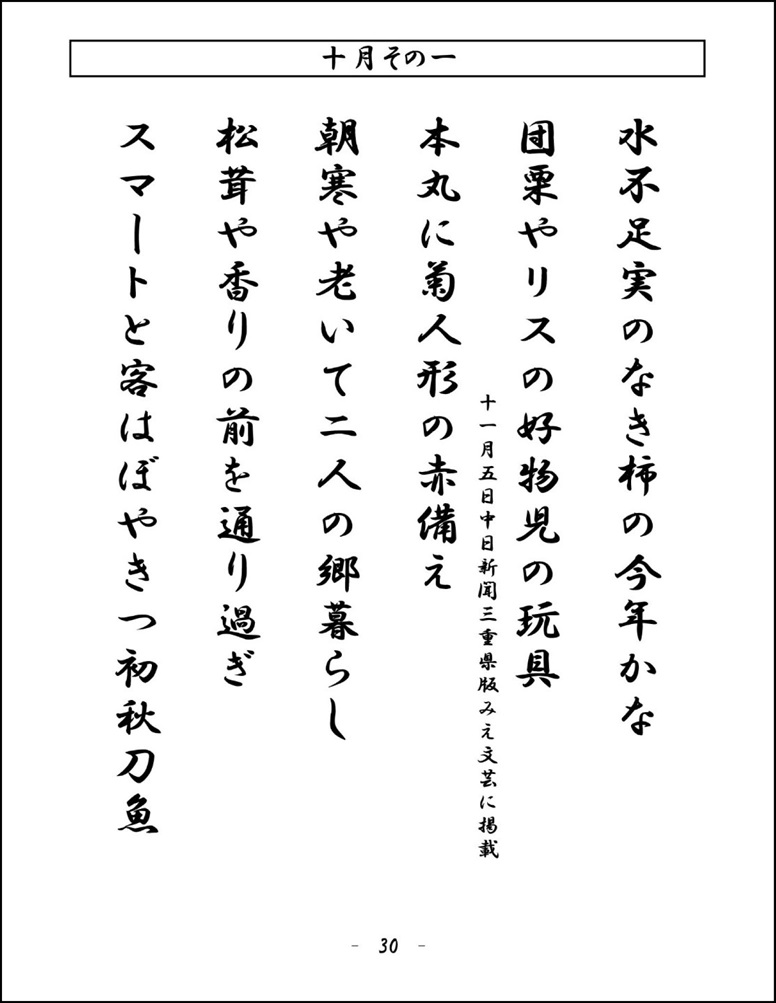 十月その一
水不足実のなき柿の今年かな
団栗やリスの好物児の玩具
十一月五日中日新聞三重県版みえ文芸に掲載
本丸に菊人形の赤備え
朝寒や老いて二人の郷暮らし
松茸や香りの前を通り過ぎ
スマートと客はぼやきつ初秋刀魚
- 30 -